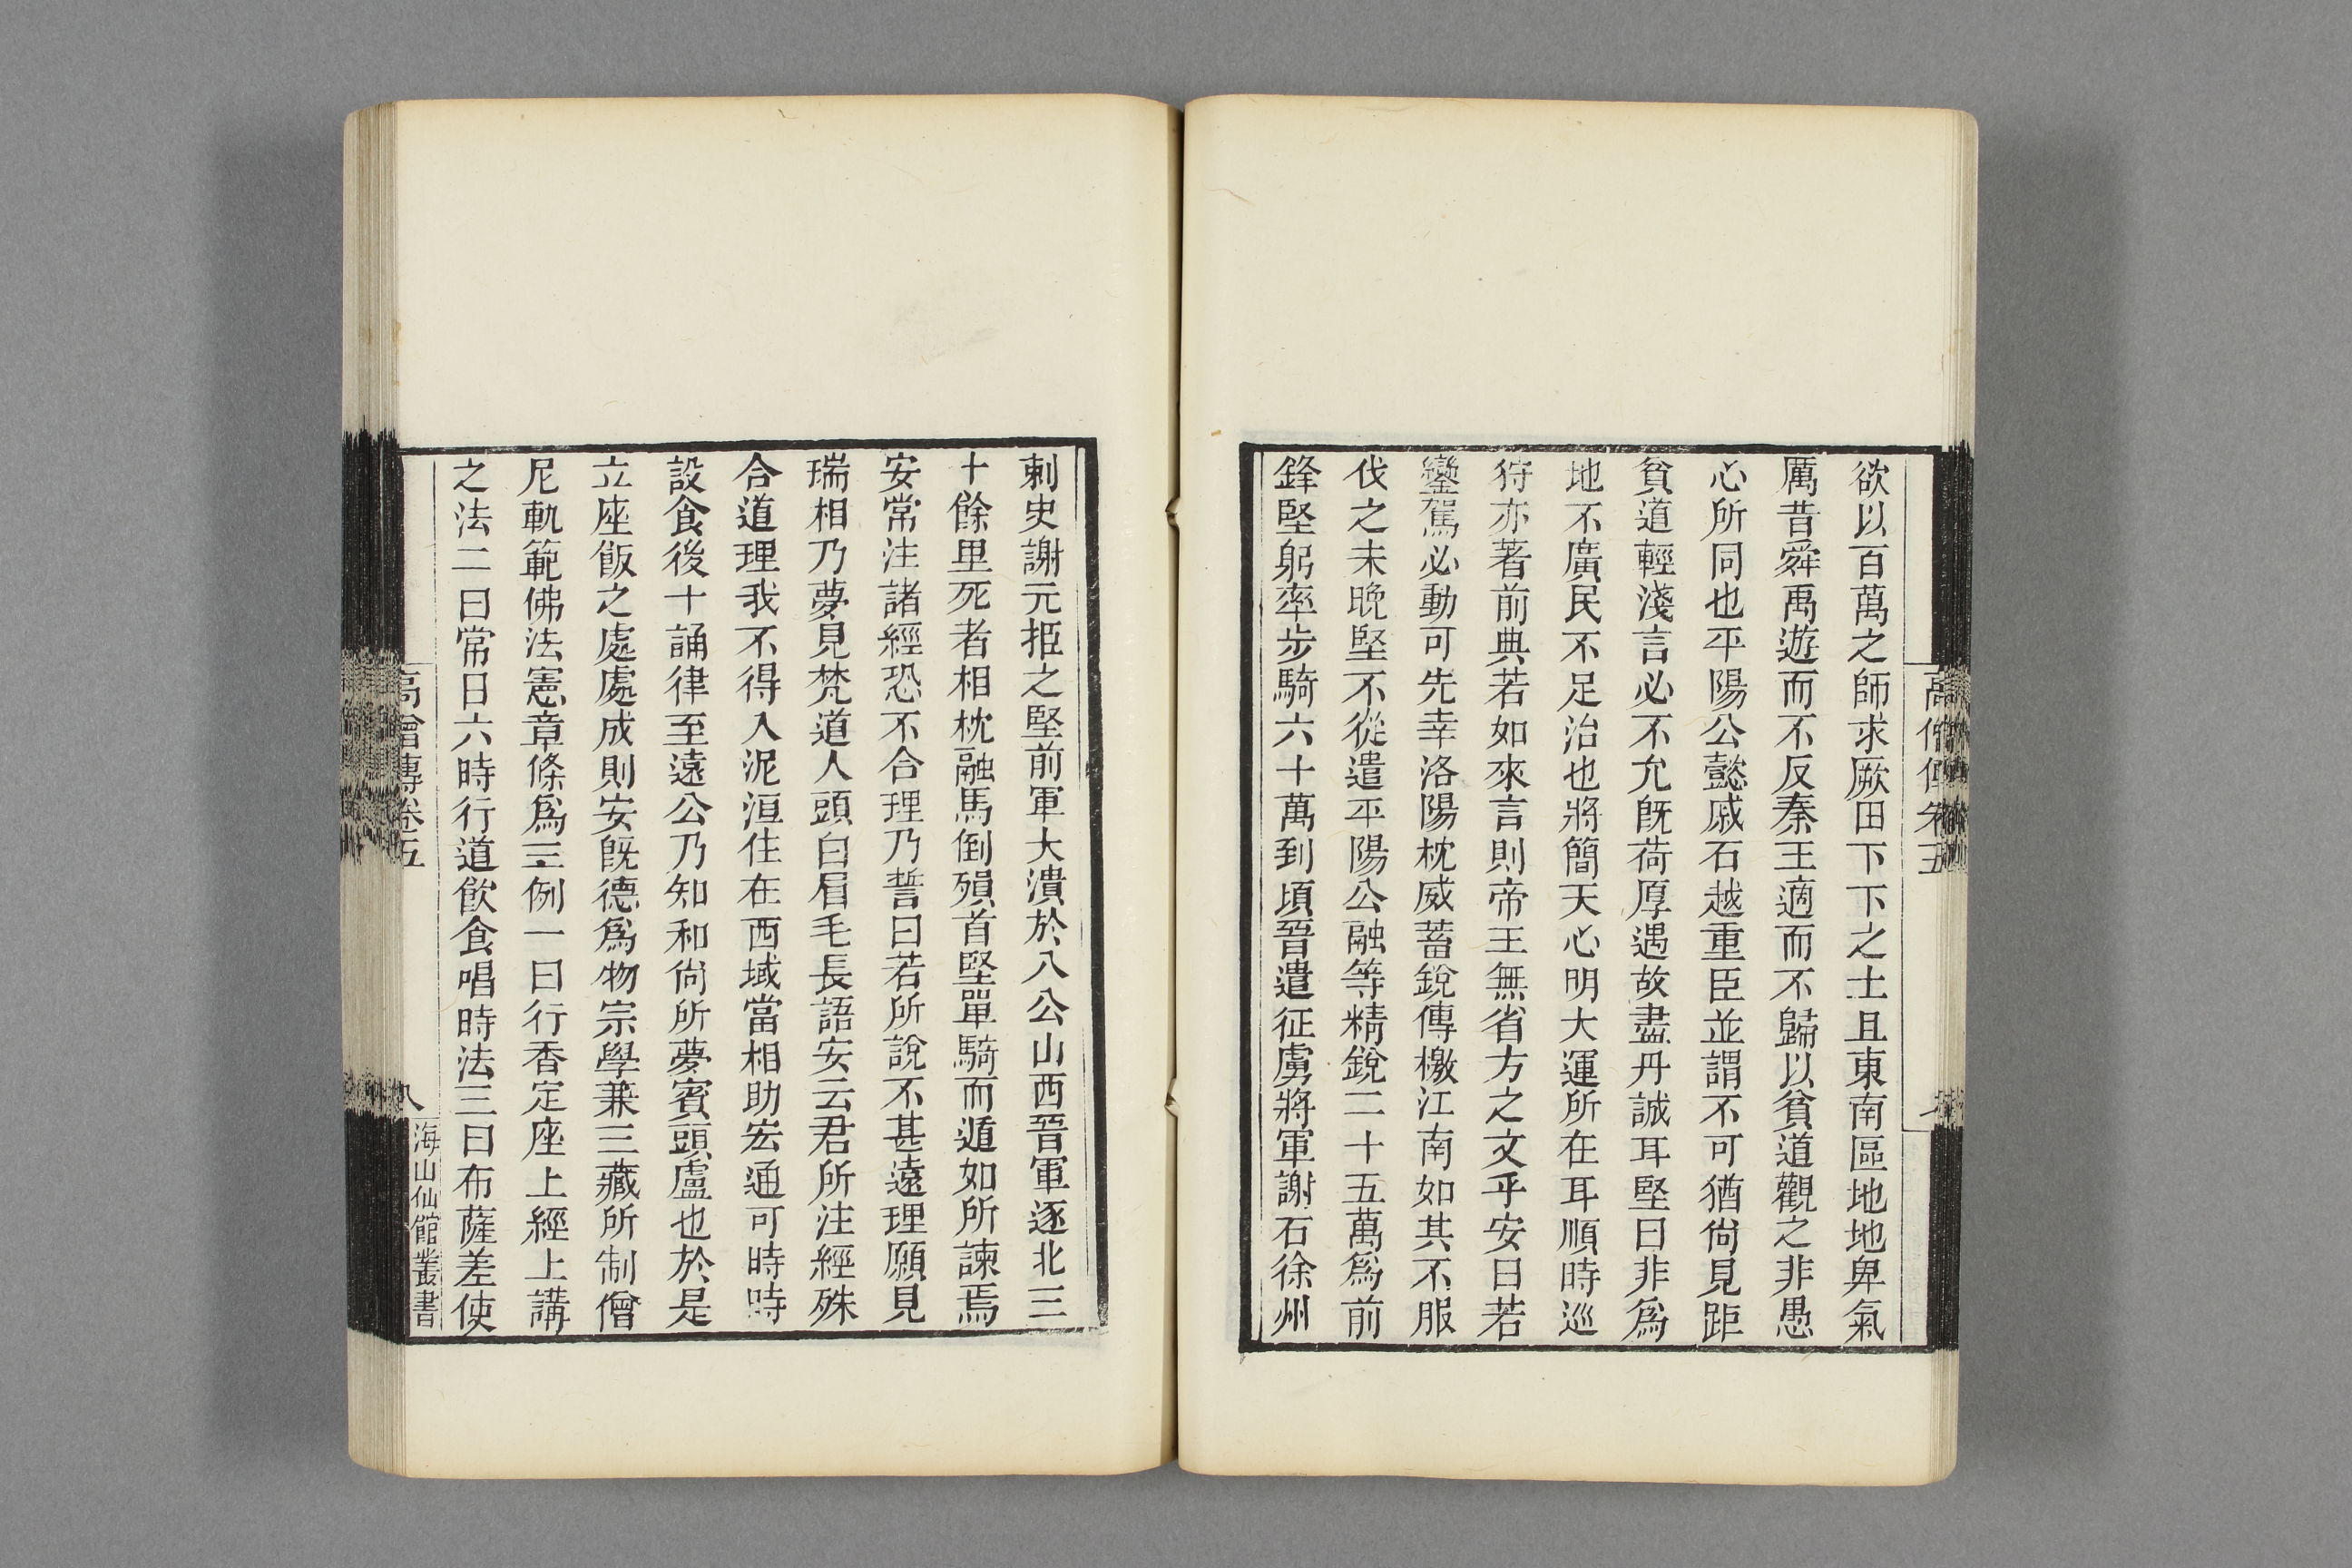 欲以百萬之師求厥田下下之土且東南區地地卑氣
厲昔舜禹遊而不反秦王適而不歸以貧道觀之非愚
心所同也平陽公懿戚石越重臣並謂不可猶尙見距
貧道輕淺言必不允旣荷厚遇故盡丹誠耳堅曰非爲
地不廣民不足治也將簡天心明大運所在耳順時巡
狩亦著前典若如來言則帝王無省方之文乎安曰若
鑾駕必動可先幸洛陽枕威蓄銳傳檄江南如其不服
伐之未晚堅不從遣平陽公融等精銳二十五萬爲前
鋒堅躬率步騎六十萬到頃晉遣征虜將軍謝石徐州
刺史謝元拒之堅前軍大潰於八公山西晉軍逐北三
十餘里死者相枕融馬倒殞首堅單騎而遁如所諫焉
安常注諸經恐不合理乃誓曰若所說不甚遠理願見
瑞相乃夢見梵道人頭白眉毛長語安云君所注經殊
合道理我不得入泥洹住在西域當相助宏通可時時
設食後十誦律至遠公乃知和尙所夢賓頭盧也於是
立座飯之處處成則安旣德爲物宗學兼三藏所制僧
尼軌範佛法憲章條爲三例一曰行香定座上經上講
之法二曰常日六時行道飲食唱時法三曰布薩差使
高僧傳卷五
八
海山仙館叢書